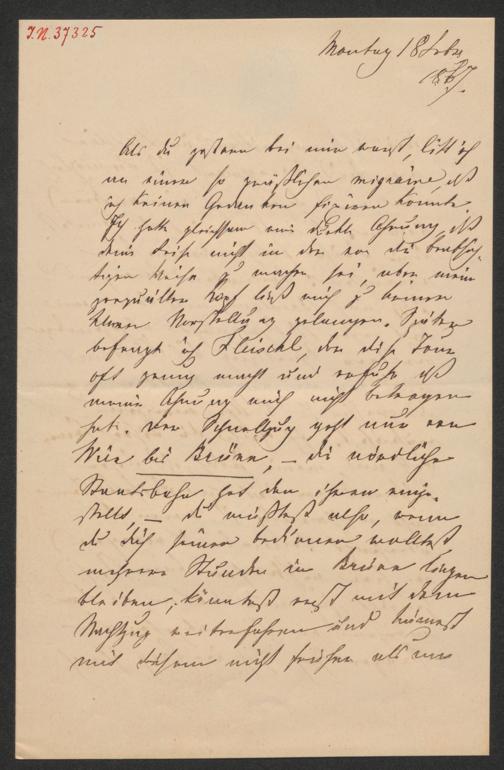 I.N. 37325
Montag 18 Febr
1867.
Als du gestern bei mir warst, litt ich
an einem so gräßlichen migraine, daß
ich keinen Gedanken fixiren konnte.
Ich hatte gleichsam eine dunkle Ahnung, daß
deine Reise nicht in der von dir beabsich-
tigten Weise zu machen sei, aber mein
gequälter Kopf ließ mich zu keiner
klaren Vorstellung gelangen. Später
befragte ich Fleischl, der diese Tour
oft genug macht und erfuhr daß
meine Ahnung mich nicht betrogen
hat. Der Schnellzug geht nur von
Wien bis Brünn, – die nördliche
Staatsbahn hat den ihren einge-
stellt, – du müßtest also, wenn
du dich seiner bedienen wolltest
mehrere Stunden in Brünn liegen
bleiben, könntest erst mit dem
Nachtzug weiterfahren und kämest
mit diesem nicht früher als um